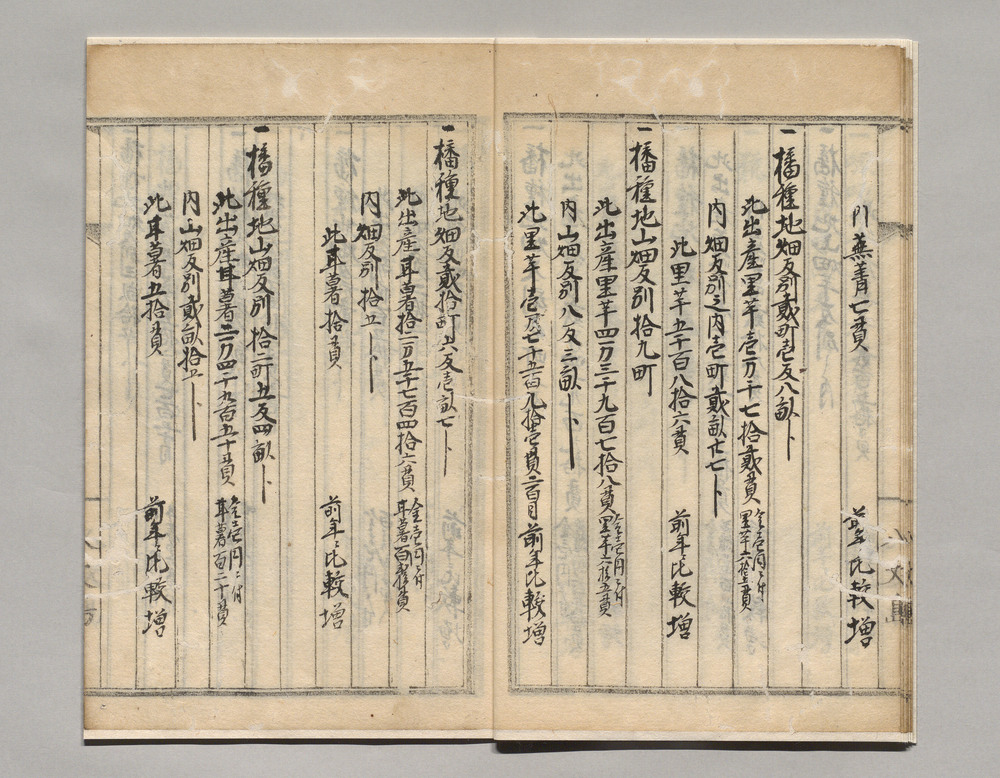 内蕪菁七貫 前年比較増
一播種地畑反別貮町壱反八畝ト
此出産里芋壱万千七拾貮貫 金壱円ニ付
里芋六拾壱貫
内畑反別之内壱町貮畝廿七ト
此里芋五千百八拾六貫 前年比較増
一播種地山畑反別拾九町
此出産里芋四万三千九百七拾八貫 金壱円ニ付
里芋六拾五貫
内山畑反別八反三畝ト
此里芋壱万七千五百九拾壱貫二百目 前年比較増
一播種地畑反貮拾町六反壱畝七ト
此出産耳薯拾二万五千七百四拾六貫 金壱円ニ付
耳薯百貫
内畑反別拾五ト
此耳薯拾貫 前年ニ比較増
一播種地山畑反別拾二町五反四畝ト
此出産耳薯二万四千九百五十貫 金壱円ニ付
耳薯百二十貫
内山畑反別貮畝拾五ト
此耳薯五拾貫 前年ニ比較増